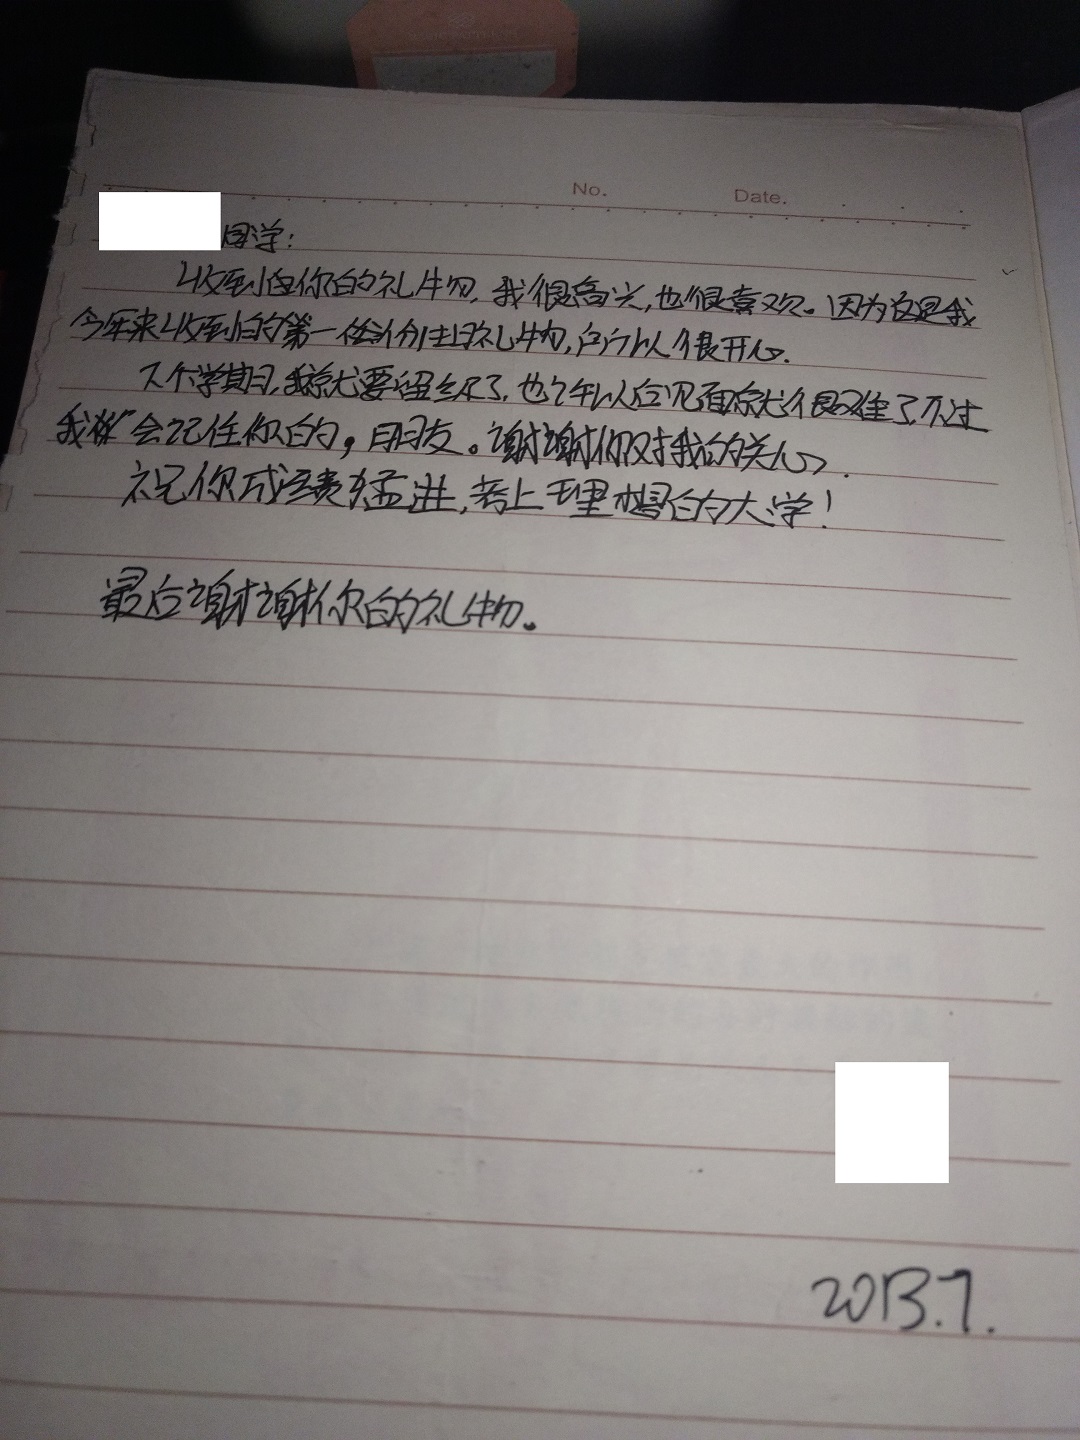 No. Date.
同学:
收到你的礼物,我很高兴,也很喜欢。因为这是我
今年来收到的第一份生日礼物,所以很开心.
下个学期,我就要留级了,也许以后见面就很难了,不过
我将会记住你的,朋友。谢谢你对我的关心.
祝你成绩猛进,考上理想的大学!
最后谢谢你的礼物。
2013.7.